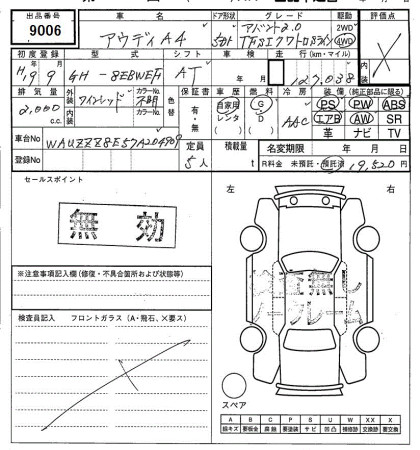 出品番号 車名 ドア形状 グレード 駆動 評価点
9006 アウディA4 5ドア アバント2.0 2WD 4WD
TFSIクワトロSライン
初度登録 型式 シフト 車検 走行(km・マイル) 内装
H19 9 GH-8EBWEF AT 年 月 127,038
排気量 外装 カラーNo. 色替 保証書 車歴 燃料 冷房 装備(純正部品に限る)
2,000 c.c. ワインレッド 不明 有・無 自家用 レンタ G D AAC PS PW ABS
内装 カラーNo. エアB AW SR
革 ナビ TV
車台No WAUZZZ8E57A204809 定員 積載量 名変期限 年 月 日
登録No 5人 t R料金 未預託・預託済 19,520円
セールスポイント
無効
左 右
※注意事項記入欄(修復・不具合箇所および状態等)
検査員記入 フロントガラス(A・飛石、X要ス)
検査無し
ノークレーム
スペア
A B C P S U W XX X
線キズ 要板金 腐蝕 要塗装 サビ 凹凸 補修跡 交換跡 要交換